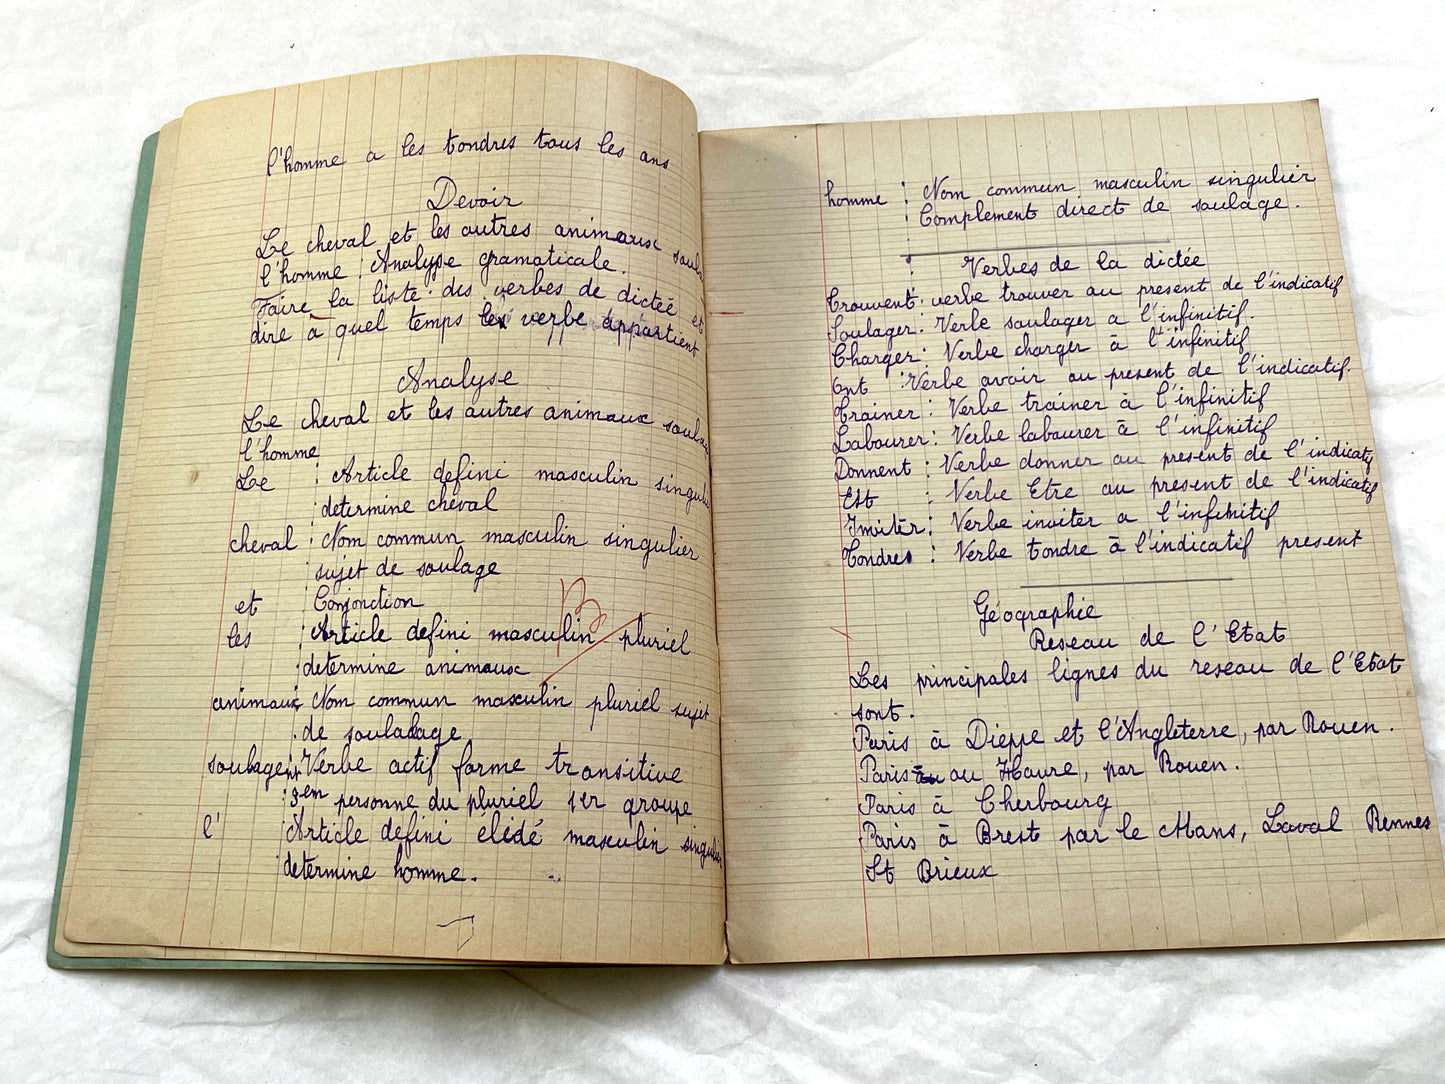 l'homme a les tondres tous les ans
Devoir
Le cheval et les autres animaux
l'homme : Analyse gramaticale.
Faire la liste des verbes de dictée et
dire à quel temps le verbe appartient
Analyse
Le cheval et les autres animaux
l'homme
Le : Article defini masculin
: determine cheval
cheval : Nom commun masculin singulier
: sujet de soulage
et : Conjonction
les : Article defini masculin pluriel
: determine animaux
animaux : Nom commun masculin pluriel sujet
: de souladage
soulagent : Verbe actif forme transitive
: 3em personne du pluriel 1er groupe
l' : Article defini élidé masculin
: determine homme.
homme : Nom commun masculin singulier
: Complement direct de soulage.
Verbes de la dictée
Trouvent : verbe trouver au present de l'indicatif
Soulager : Verbe soulager a l'infinitif.
Charger : Verbe charger à l'infinitif
Ont : Verbe avoir au present de l'indicatif.
Trainer : Verbe trainer à l'infinitif
Labourer : Verbe labourer à l'infinitif
Donnent : Verbe donner au present de l'indicatif
Est : Verbe Etre au présent de l'indicatif
Inviter : Verbe inviter a l'infinitif
Tondres : Verbe tondre à l'indicatif present
Géographie
Reseau de l'Etat
Les principales lignes du reseau de l'Etat
sont.
Paris à Dieppe et l'Angleterre, par Rouen.
Paris au Havre, par Rouen.
Paris à Cherbourg
Paris à Brest par le Mans, Laval Rennes
St Brieux